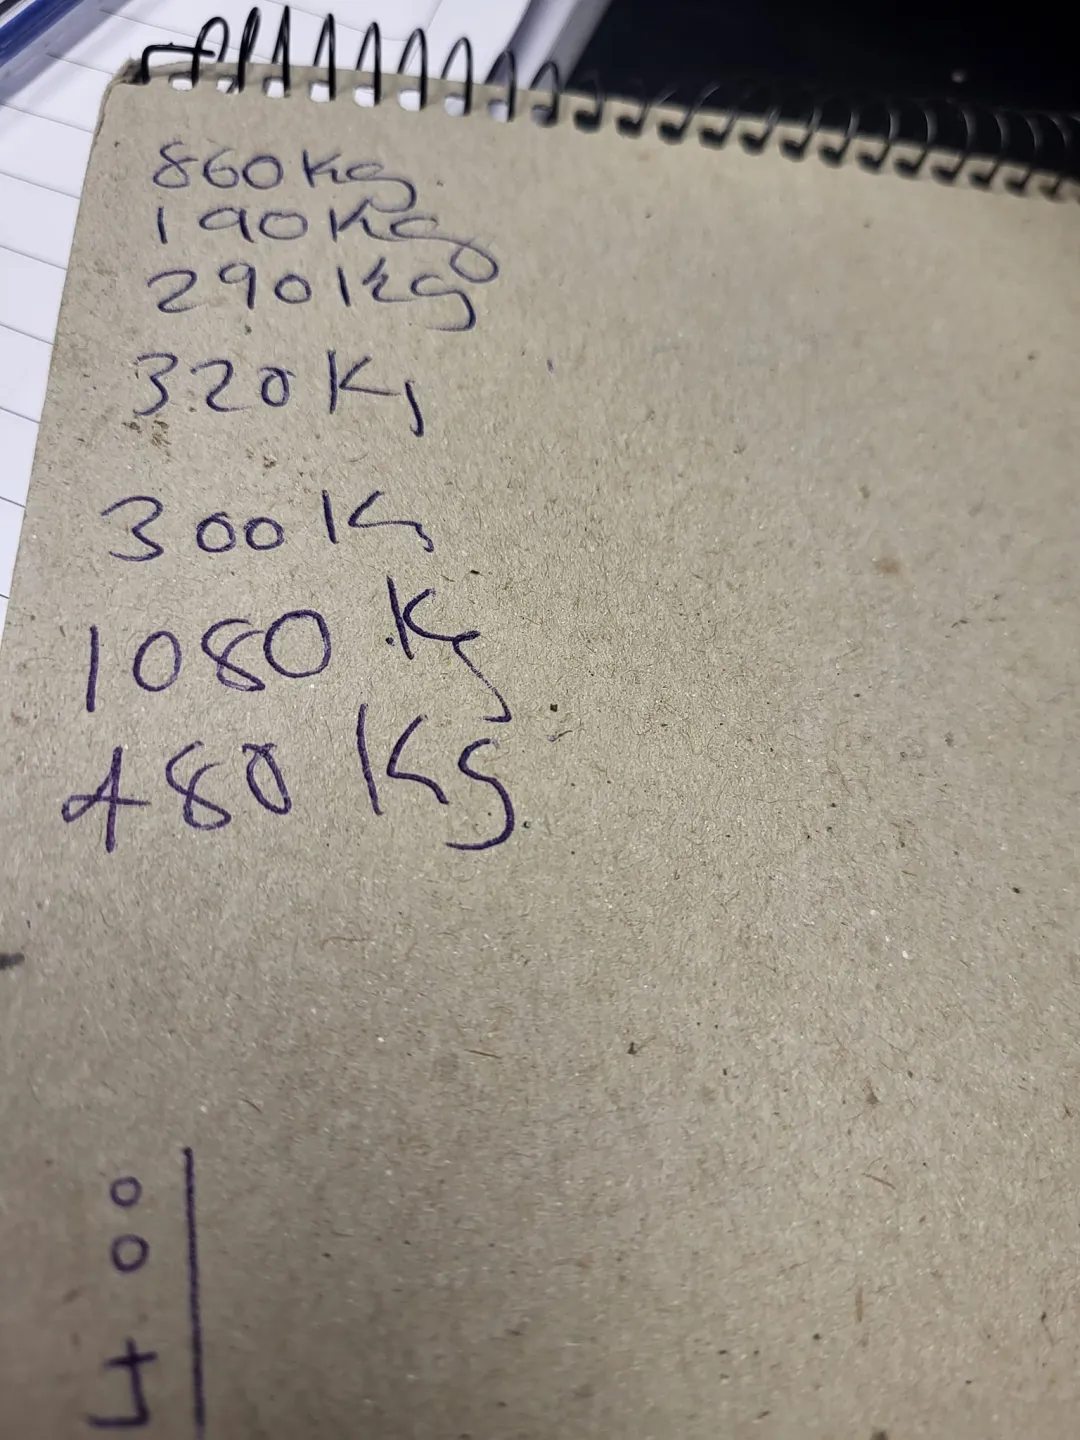 860 Kg
190 Kg
290 Kg
320 Kg
300 Kg
1080 Kg
480 Kg